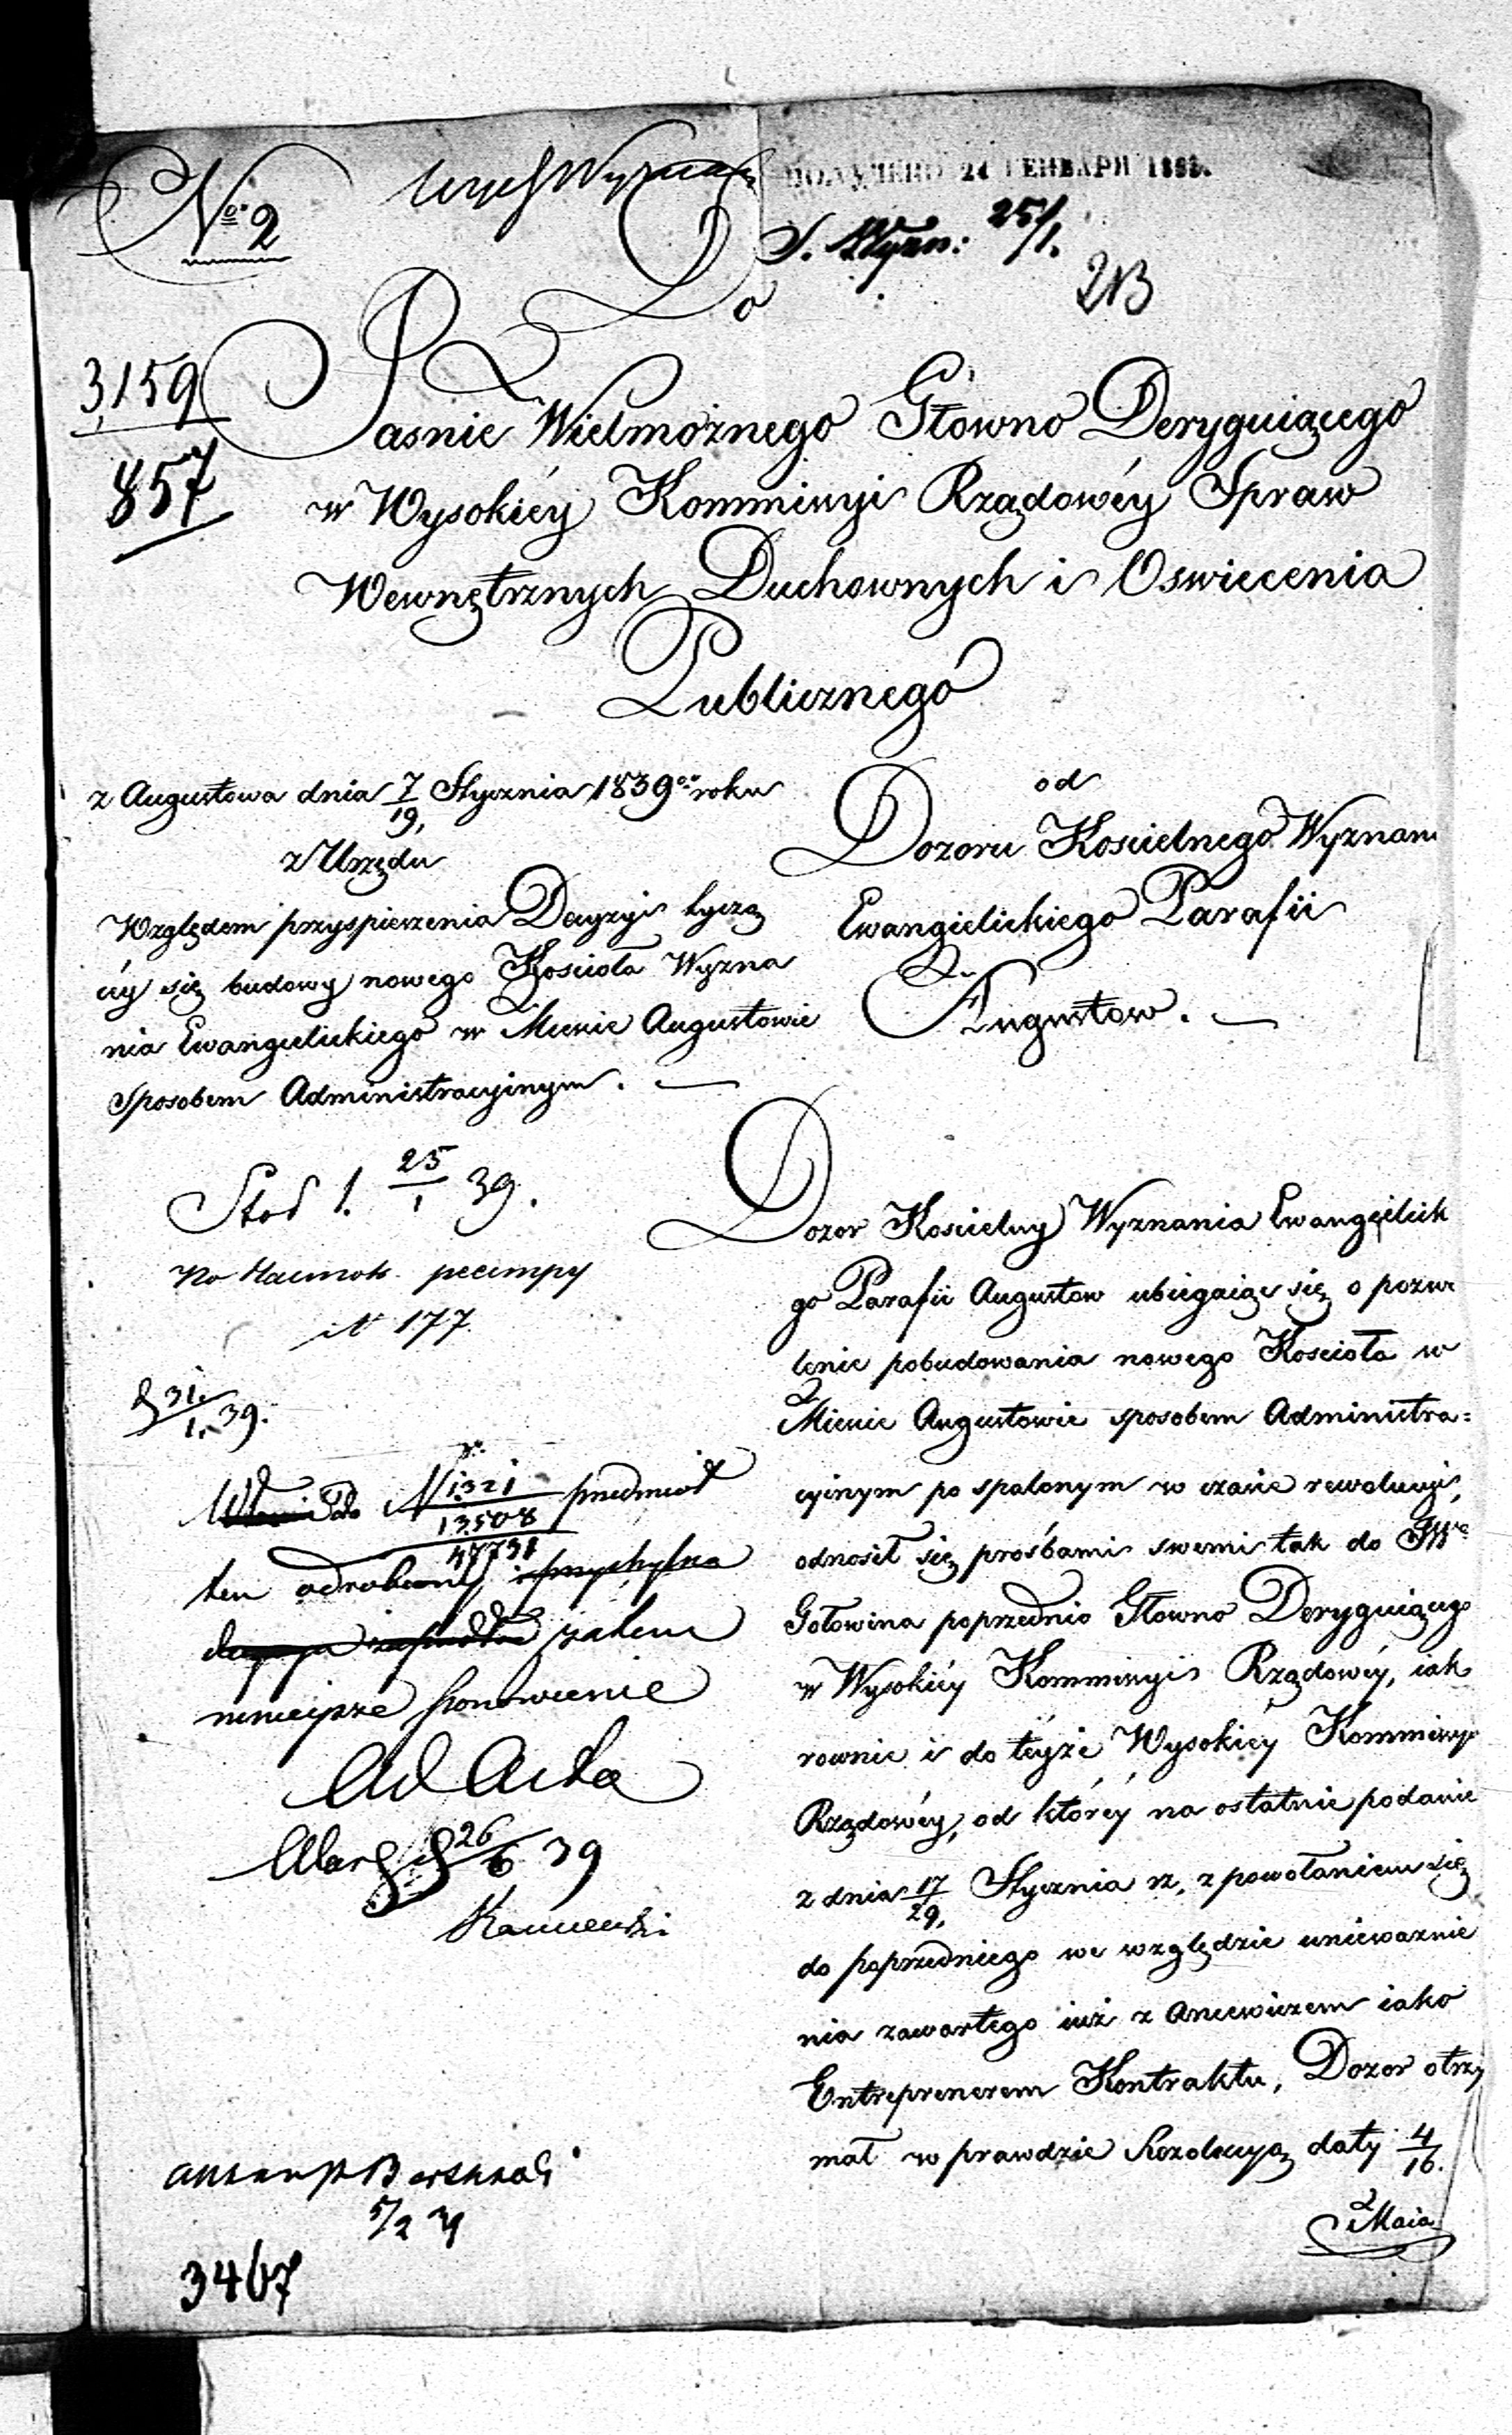 No. 2
ПОЛУЧЕНО 24 ГЕНВАРЯ
S. Wyzn: 25/1.
213
Do
3,159
857
Jasnie Wielmożnego Głowno Deryguiącego
w Wysokiéy Kommissyi Rządowéy Spraw
Wewnętrznych Duchownych i Oswiecenia
Publicznego
z Augustowa dnia 7/19, Stycznia 1839go roku
z Urzędu
Względem przyspieszenia Decyzyi tyczą
céy się budowy nowego Kościoła Wyzna
nia Ewangielickiego w Miescie Augustowie
Sposobem Administracyinym.
od
Dozoru Koscielnego Wyznani
Ewangielickiego Parafii
Augustow.
25/1 39.
No 177
31./1. 39.
N 1321/13508/47731 przedmiot
ten odrobiony
zatem
ninieysze ponowienie
Ad Acta
26/6 39
5/2 39
3467
Dozor Koscielny Wyznania Ewangielick
go Parafii Augustow ubiegaiąc się o pozwo
lenie pobudowania nowego Kościoła w
Miescie Augustowie sposobem Administra=
cyinym po spalonym w czasie rewolucyi,
odnosił się prośbami swemi tak do JWo
Gołowina poprzednio Głowno Deryguiącego
w Wysokiéy Kommissyi Rządowéy, iak
rownie i do téyże Wysokiéy Kommissyi
Rządowéy, od któréy na ostatnie podanie
z dnia 17/29, Stycznia rz, z powołaniem się
do poprzedniego we względzie unieważnie
nia zawartego iuż z Ancewiczem iako
Entreprenerem Kontraktu, Dozor otrzy
mał w prawdzie Rezolucyą daty 4/16.
Maia